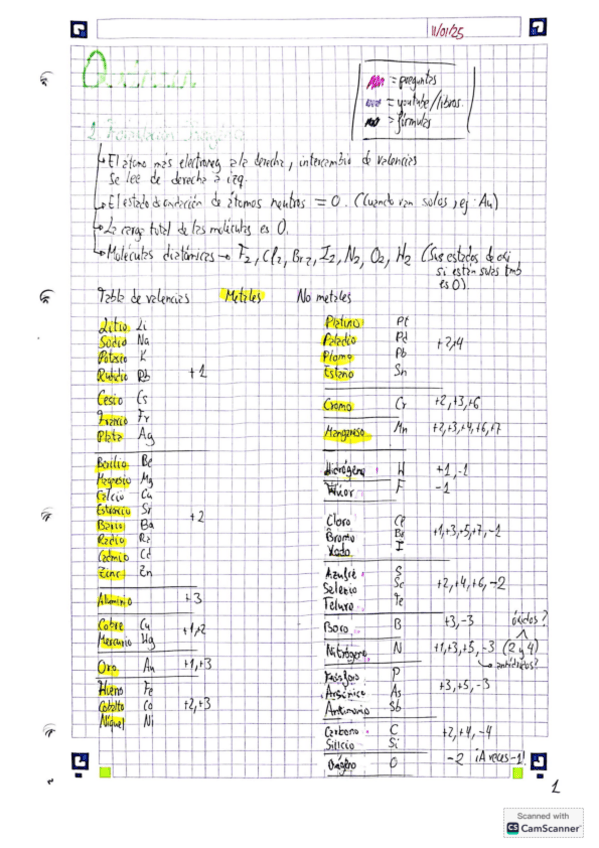 11/01/25
Química
= preguntas
= youtube/libros
= fórmulas
El átomo más electroneg a la derecha, intercambio de valencias
Se lee de derecha a izq.
El estado de oxidación de átomos neutros = 0. (Cuando van solos, ej: Au)
La carga total de las moléculas es 0.
Moléculas diatómicas → F2, Cl2, Br2, I2, N2, O2, H2 (Sus estados de oxi
si están solas tmb
es 0).
Tabla de valencias Metales No metales
Litio Li
Sodio Na
Potasio K
Rubidio Rb +1
Cesio Cs
Francio Fr
Plata Ag
Berilio Be
Magnesio Mg
Calcio Ca
Estroncio Sr
Bario Ba +2
Radio Ra
Cadmio Cd
Zinc Zn
Aluminio +3
Cobre Cu
Mercurio Hg +1,+2
Oro Au +1,+3
Hierro Fe
Cobalto Co +2,+3
Níquel Ni
Platino Pt
Paladio Pd +2,4
Plomo Pb
Estaño Sn
Cromo Cr +2,+3,+6
Manganeso Mn +2,+3,+4,+6,+7
Hidrógeno H +1,-1
Flúor F -1
Cloro Cl
Bromo Br +1,+3,+5,+7,-1
Yodo I
Azufre S
Selenio Se +2,+4,+6,-2
Teluro Te
Boro B +3,-3
óxidos?
Nitrógeno N +1,+3,+5,-3 (2 y 4)
Fósforo P
Arsénico As +3,+5,-3
Antimonio Sb
Carbono C +2,+4,-4
Silicio Si
Oxígeno O -2 ¡A veces -1!
1
Scanned with
CS CamScanner